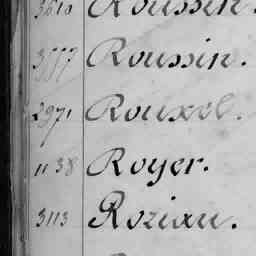 3610 Roussin.
3557 Roussin.
2971 Rouxel.
1138 Royer.
3113 Roziau.